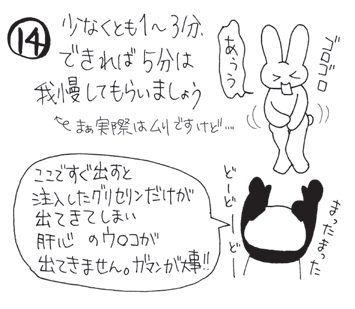 ⑭
少なくとも1〜3分、
できれば5分は
我慢してもらいましょう
まぁ実際はムリですけど…
あぅぅ
ゴロゴロ
ここですぐ出すと
注入したグリセリンだけが
出てきてしまい
肝心 のウ〇コが
出てきません。ガマンが大事!!
どーどーどー
まったまった